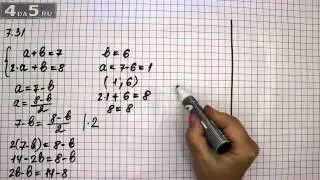 4da5.ru
7.31
a+b=7
2·a+b=8
a=7-b
a=8-b/2
7-b=8-b/2 |·2
2(7-b)=8-b
14-2b=8-b
2b-b=14-8
b=6
a=7-6=1
(1;6)
2·1+6=8
8=8